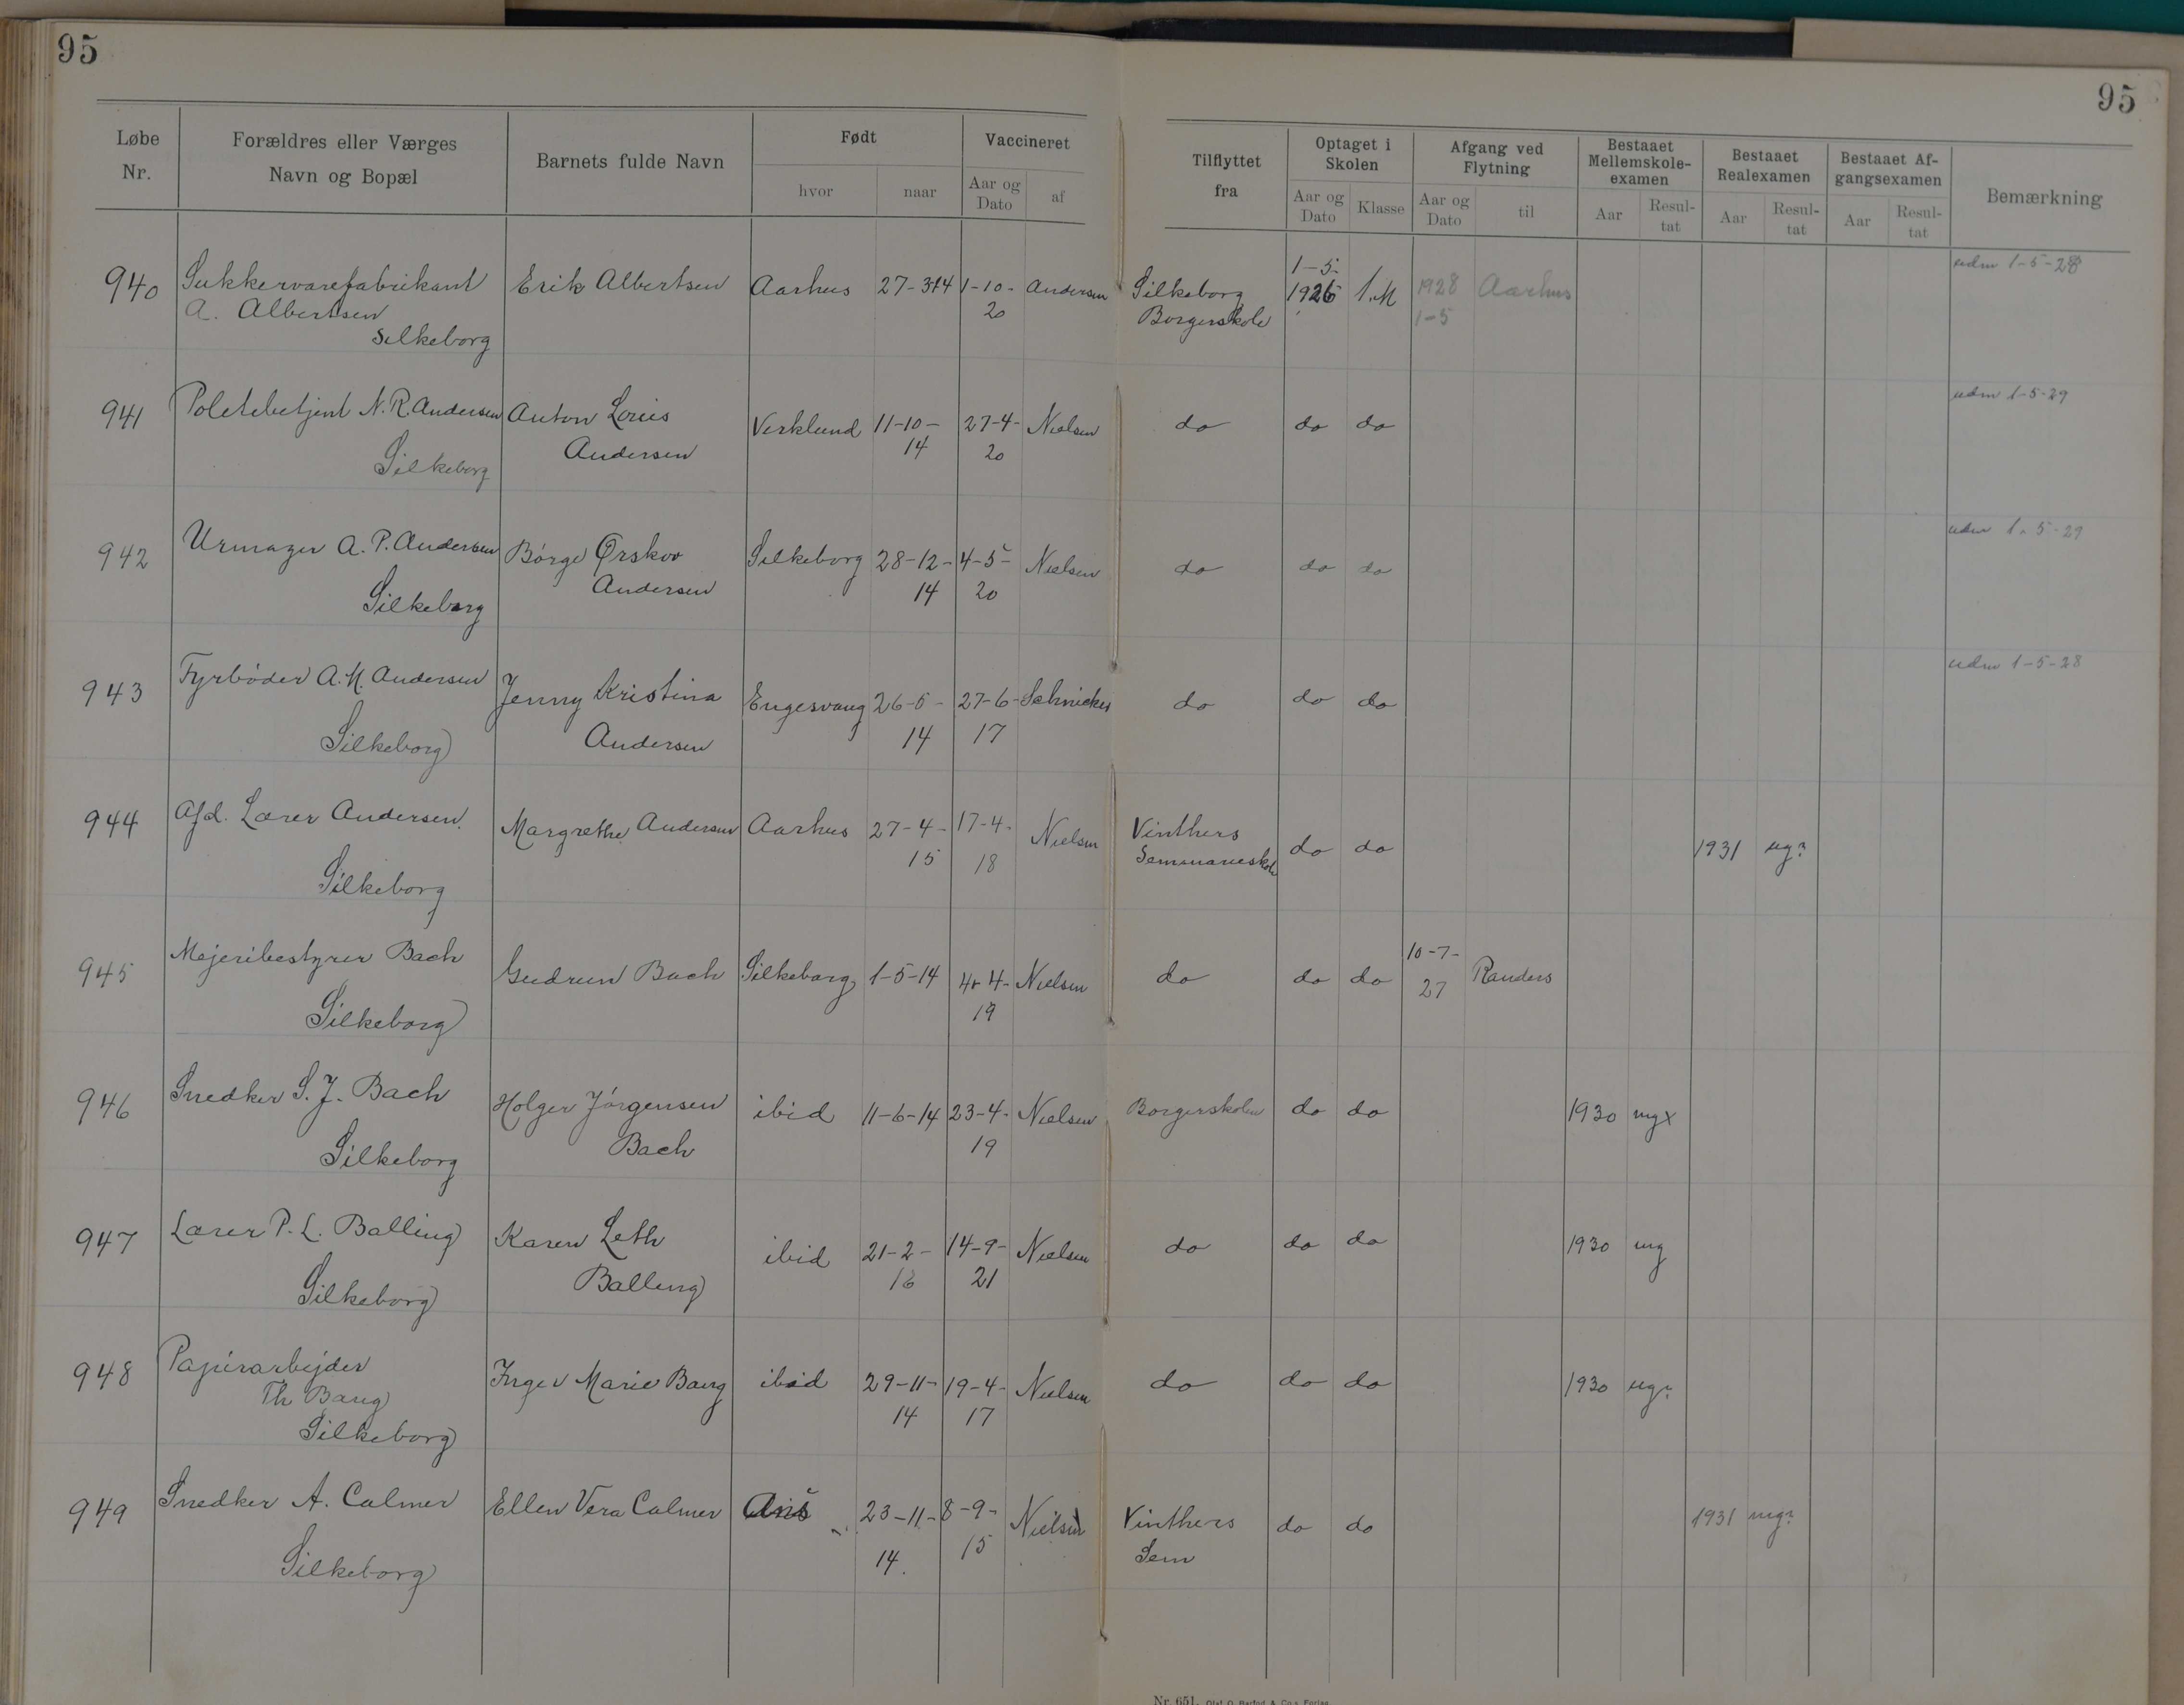 95
95
Løbe Nr.
Forældres eller Værges Navn og Bopæl
Barnets fulde Navn
Født
hvor
naar
Vaccineret
Aar og Dato
af
Tilflyttet fra
Optaget i Skolen
Aar og Dato
Klasse
Afgang ved Flytning
Aar og Dato
til
Bestaaet Mellemskole-examen
Aar
Resul-tat
Bestaaet Realexamen
Aar
Resul-tat
Bestaaet Af-gangsexamen
Aar
Resul-tat
Bemærkning
940 Sukkervarefabrikant Erik Albertsen Aarhus 27-3-14 1-10- Andersen Silkeborg 1-5- 1926 1.M 1928 Aarhus udm 1-5-28
A. Albertsen 20 Borgerskole 1-5
Silkeborg
941 Politibetjent N.R. Andersen Anton Louis Virklund 11-10- 27-4- Nielsen do do do udm 1-5-29
Silkeborg Andersen 14 20
942 Urmager A.P. Andersen Børge Ørskov Silkeborg 28-12- 4-5- Nielsen do do do udm 1-5-29
Silkeborg Andersen 14 20
943 Fyrbøder A.M. Andersen Jenny Kristina Engesvang 26-5- 27-6- do do do udm 1-5-28
Silkeborg Andersen 14 17
944 Afd. Lærer Andersen Margrethe Andersen Aarhus 27-4- 17-4- Nielsen Vinthers do do 1931 ug?
Silkeborg 15 18 Seminarieskole
945 Mejeribestyrer Bach Gudrun Bach Silkeborg 1-5-14 4-4- Nielsen do do do 10-7- Randers
Silkeborg 19 27
946 Snedker S.J. Bach Holger Jørgensen ibid 11-6-14 23-4- Nielsen Borgerskolen do do 1930 mgx
Silkeborg Bach 19
947 Lærer P.L. Balling Karen Leth ibid 21-2- 14-9- Nielsen do do do 1930 mg
Silkeborg Balling 16 21
948 Papirarbejder Inger Marie Bang ibid 29-11- 19-4- Nielsen do do do 1930 ug?
Th Bang 14 17
Silkeborg
949 Snedker A. Calmer Ellen Vera Calmer Ans 23-11- 8-9- Nielsen Vinthers do do 1931 mg?
Silkeborg 14. 15 Sem
Nr. 651.